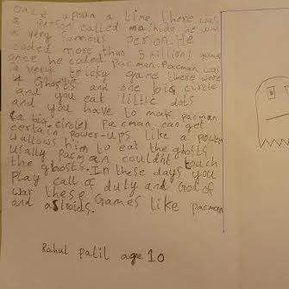 once upon a time there was
a person called mashide he was
a very famous person. He
coded more than 5 million games
once he coded Pacman. Pacman was
a very tricky game there were
4 Ghosts and one big circle
and you eat little dots
and you have to make pacman
(a big circle) pacman can get
certain power-ups like a power
allows him to eat the ghosts
pacman couldn't touch
the ghosts. In these days you
Play call of duty and God of
war these Games like pacman
and astroids.
Rahul patil age 10